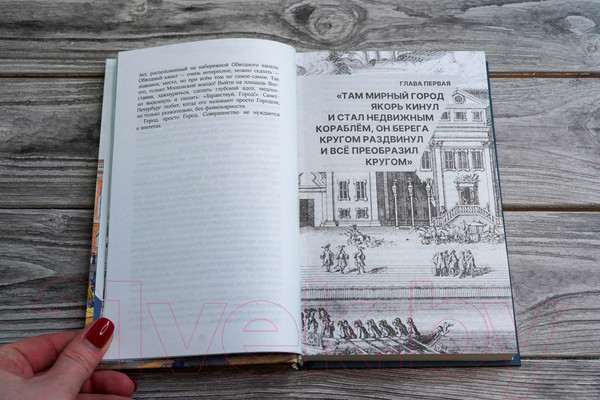 вал, расположенный на набережной Обводного канала.
Обводный канал — очень интересное, можно сказать —
знаковое, место, но при всём том не самое-самое. Так
что, только Московский вокзал! Выйти на площадь Вос-
стания, зажмуриться, сделать глубокий вдох, медлен-
но выдохнуть и сказать: «Здравствуй, Город!». Санкт-
Петербург любит, когда его называют просто Городом,
но только уважительно, без фамильярности.
Город, просто Город. Совершенство не нуждается
в эпитетах.
ГЛАВА ПЕРВАЯ
«ТАМ МИРНЫЙ ГОРОД
ЯКОРЬ КИНУЛ
И СТАЛ НЕДВИЖНЫМ
КОРАБЛЁМ, ОН БЕРЕГА
КРУГОМ РАЗДВИНУЛ
И ВСЁ ПРЕОБРАЗИЛ
КРУГОМ»